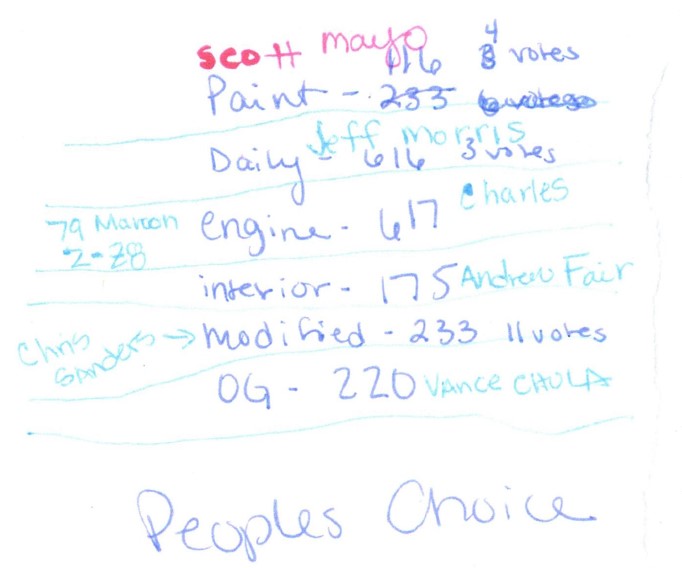 scott mayo
116 4 votes
Paint - 233
Jeff Morris
Daily - 616 3 votes
79 Maroon
Z-28
engine - 617 Charles
interior - 175 Andrew Fair
Chris
Sanders → modified - 233 11 votes
OG - 220 VANCE CHULA
Peoples Choice